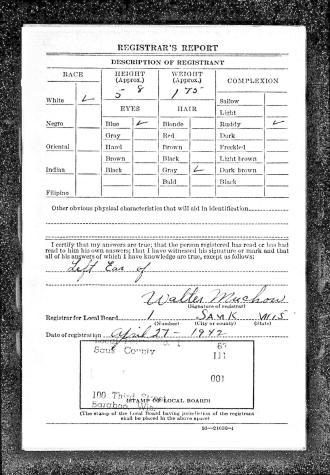 REGISTRAR'S REPORT
DESCRIPTION OF REGISTRANT
RACE
HEIGHT (Approx.)
WEIGHT (Approx.)
COMPLEXION
5 8
1 75
White ✓
Sallow
Light
EYES
HAIR
Negro
Blue ✓
Blonde
Ruddy ✓
Gray
Red
Dark
Oriental
Hazel
Brown
Freckled
Brown
Black
Light brown
Indian
Black
Gray ✓
Dark brown
Bald
Black
Filipino
Other obvious physical characteristics that will aid in identification
I certify that my answers are true; that the person registered has read or has had
read to him his own answers; that I have witnessed his signature or mark and that
all of his answers of which I have knowledge are true, except as follows:
Left Ear of
Walter Muchow
(Signature of registrar)
Registrar for Local Board 1 SAUK WIS
(Number) (City or county) (State)
Date of registration April 27 - 1942
Sauk County 111
001
100 Third Street
Baraboo, Wis.
(STAMP OF LOCAL BOARD)
(The stamp of the Local Board having jurisdiction of the registrant
shall be placed in the above space)